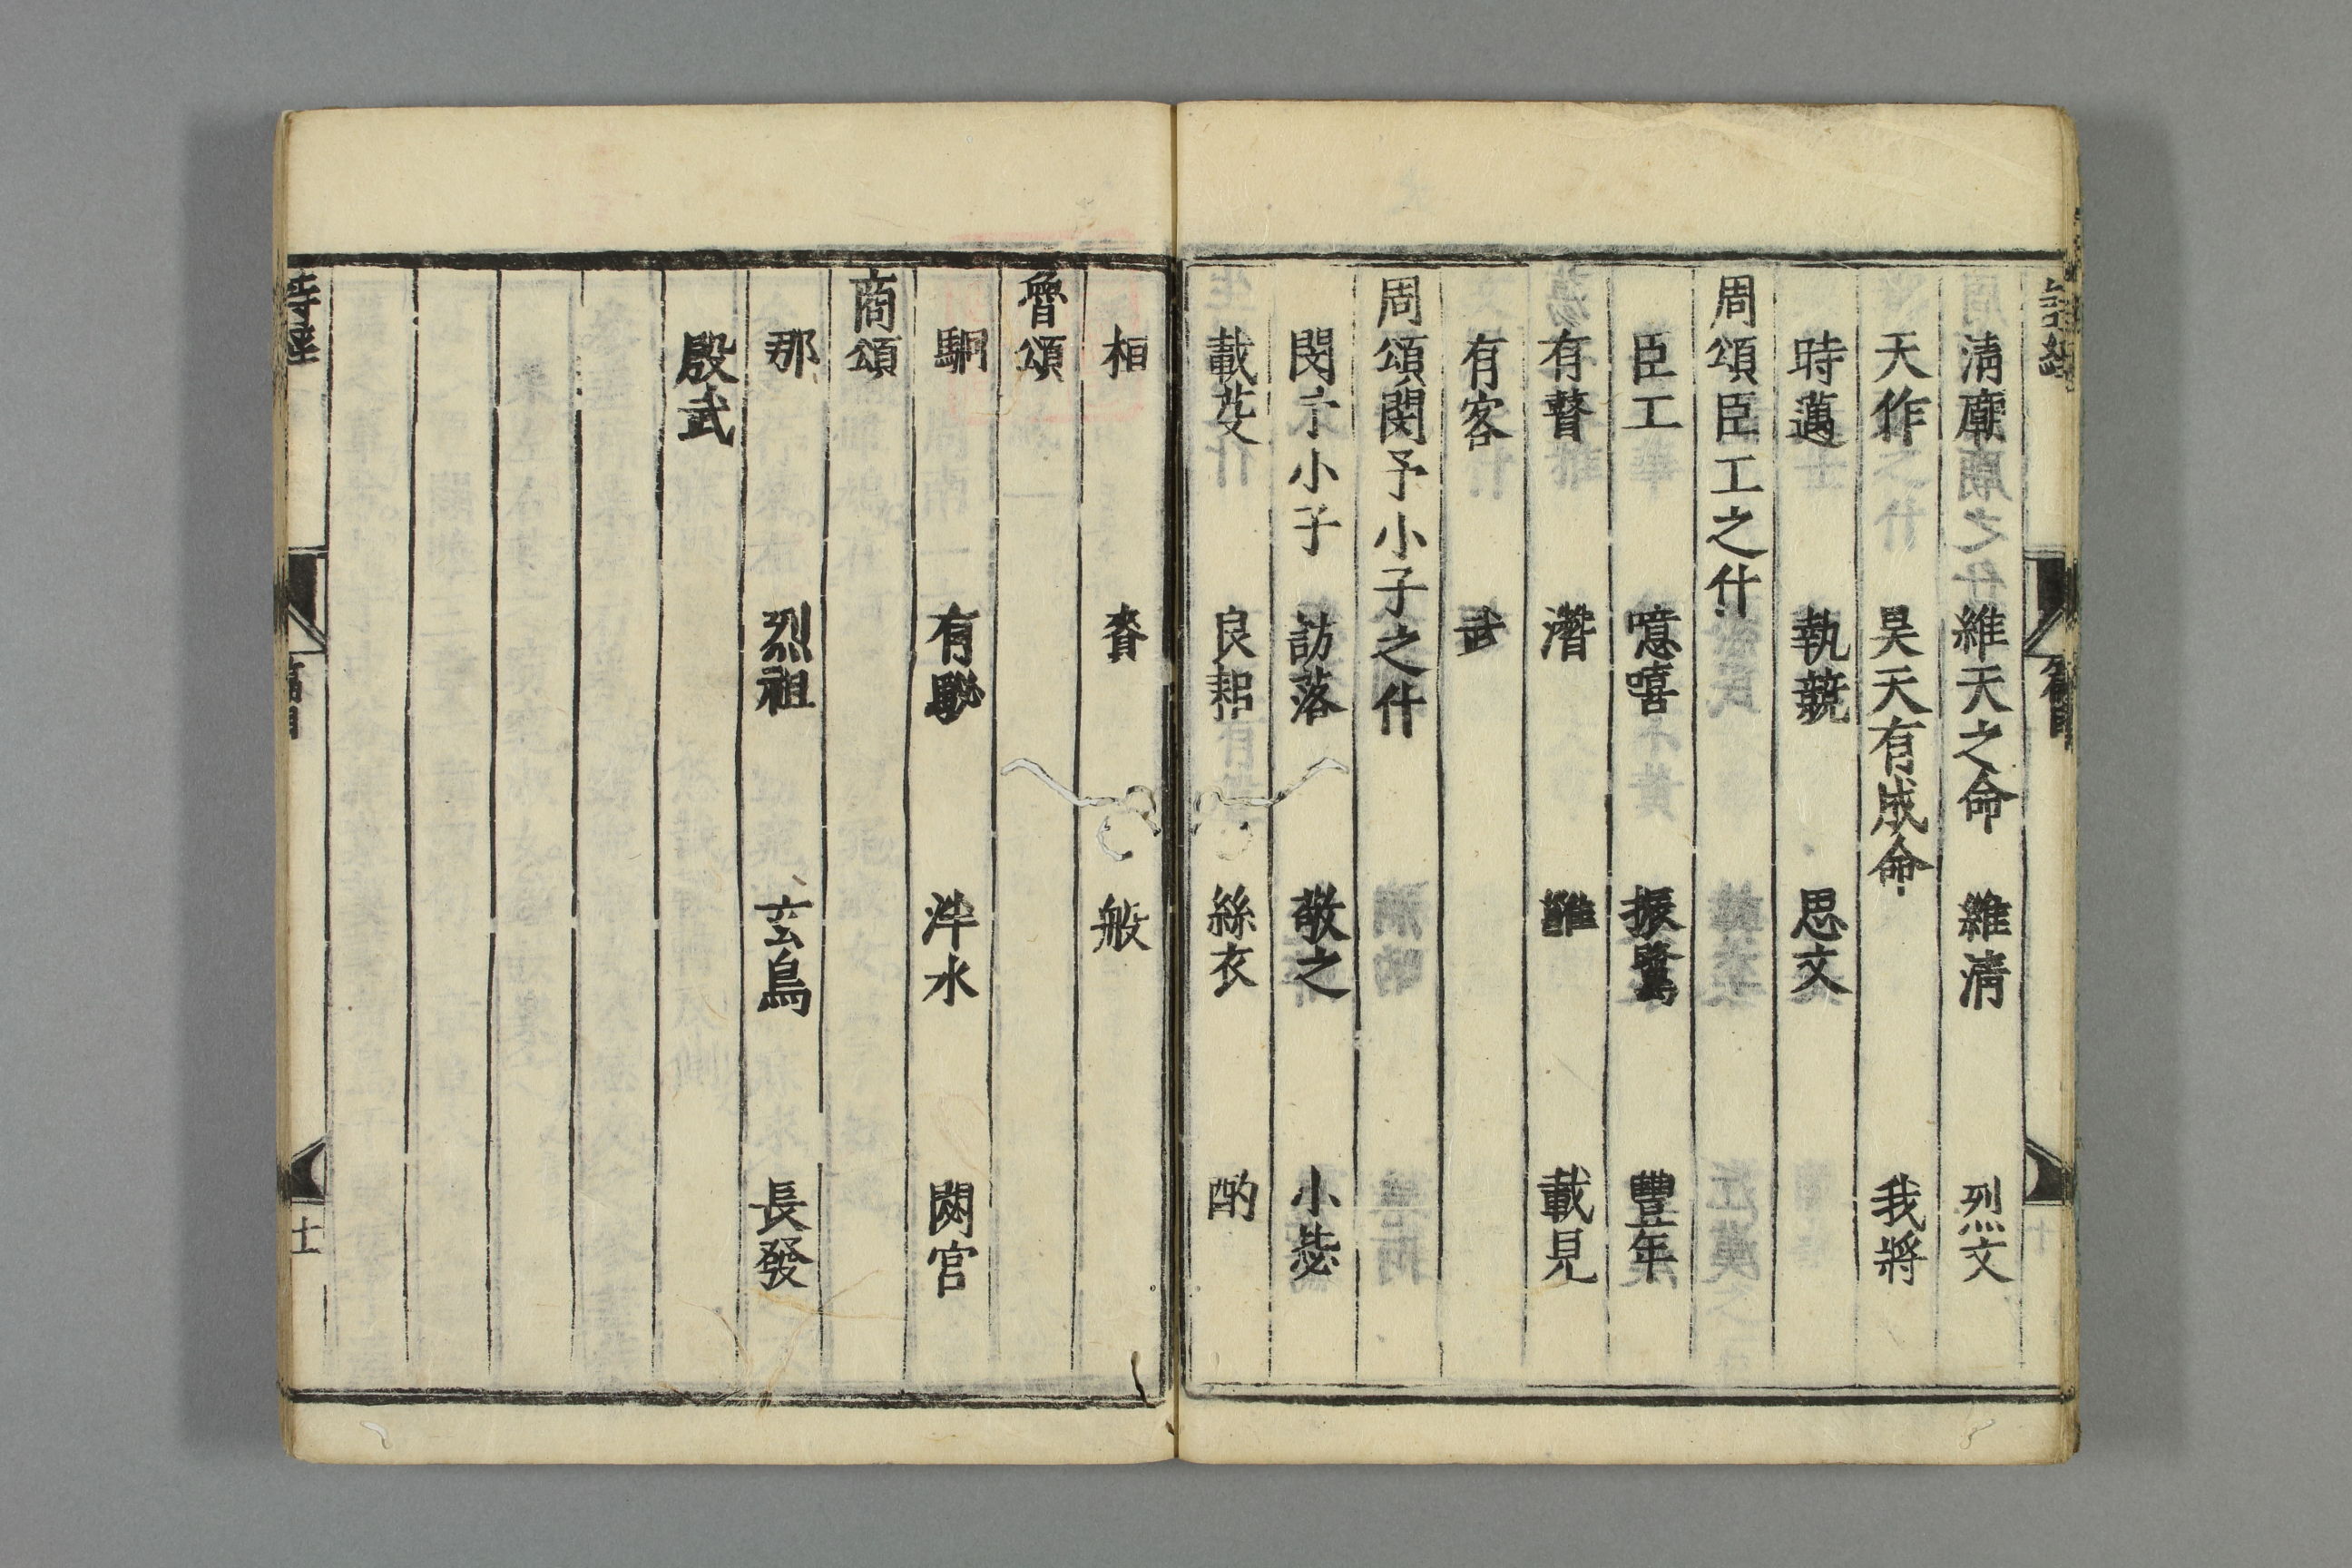 清廟 維天之命 維清 烈文
天作 昊天有成命 我將
時邁 執競 思文
周頌臣工之什
臣工 噫嘻 振鷺 豐年
有瞽 潛 雝 載見
有客 武
周頌閔予小子之什
閔予小子 訪落 敬之 小毖
載芟 良耜 絲衣 酌
桓 賚 般
魯頌
駉 有駜 泮水 閟宮
商頌
那 烈祖 玄鳥 長發
殷武
詩經 篇目 十